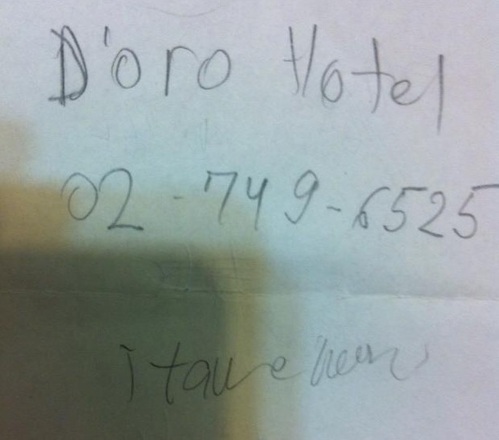 D'oro Hotel
02-749-6525